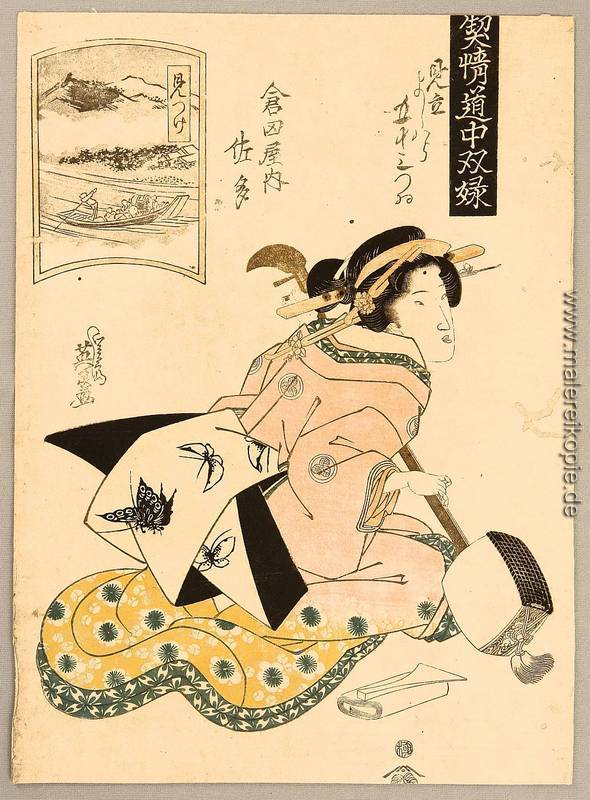 契情道中双娽
見立
よしはら
五十三つゐ
倉田屋内
佐多
見つけ
英泉画
www.malereikopie.de